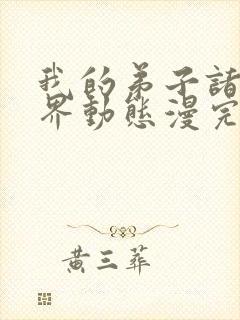 我的弟子諸
界動態漫完
黄三葬